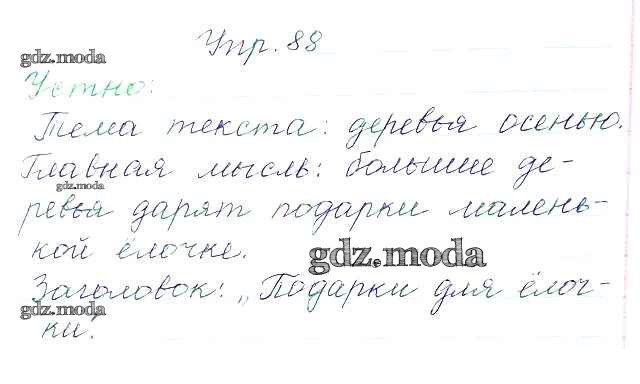 Упр. 88
gdz.moda
Устно:
Тема текста: деревья осенью.
Главная мысль: большие де-
gdz.moda
ревья дарят подарки малень-
кой ёлочке.
gdz.moda
Заголовок: „Подарки для ёлоч-
gdz.moda
ки."